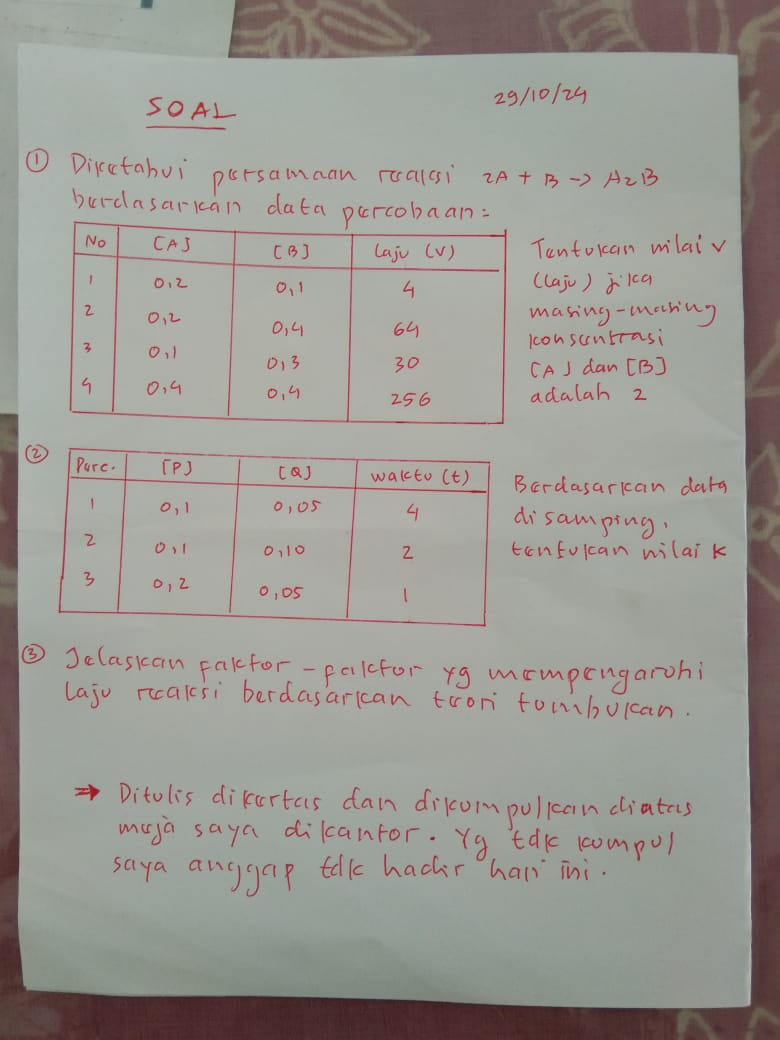 SOAL
29/10/24
① Diketahui persamaan reaksi 2A + B -> A2B
berdasarkan data percobaan:
No [A] [B] Laju (V)
1 0,2 0,1 4
2 0,2 0,4 64
3 0,1 0,3 30
4 0,4 0,4 256
Tentukan nilai v
(laju) jika
masing-masing
konsentrasi
[A] dan [B]
adalah 2
②
Perc. [P] [Q] waktu (t)
1 0,1 0,05 4
2 0,1 0,10 2
3 0,2 0,05 1
Berdasarkan data
disamping,
tentukan nilai k
③ Jelaskan faktor-faktor yg mempengaruhi
laju reaksi berdasarkan teori tumbukan.
⇒ Ditulis dikertas dan dikumpulkan diatas
meja saya dikantor. Yg tdk kumpul
saya anggap tdk hadir hari ini.